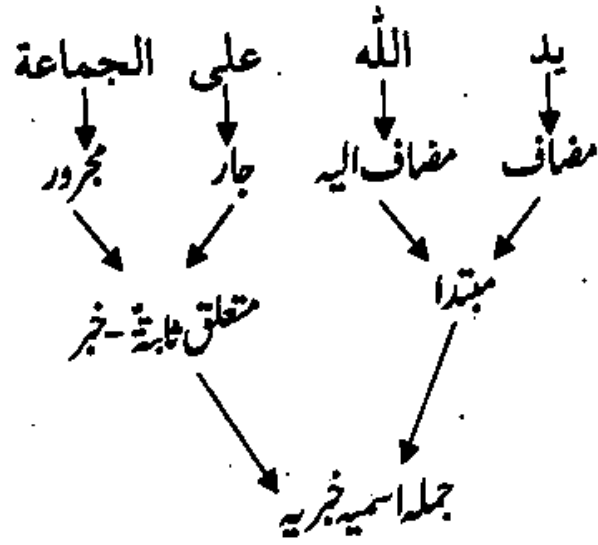 يد الله على الجماعة
مضاف مضاف الیہ جار مجرور
مبتدا متعلق ثابتۃ - خبر
جملہ اسمیہ خبریہ